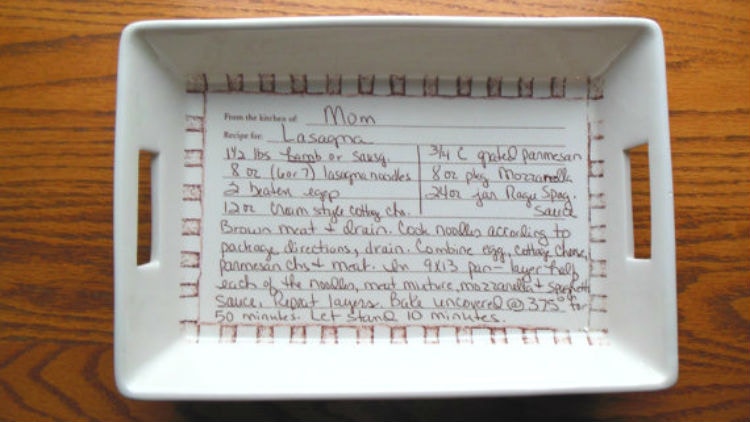 From the kitchen of: Mom
Recipe for: Lasagna
1 1/2 lbs hamb or sausg.
8 oz (6 or 7) lasagna noodles
2 beaten eggs
12 oz Cream style cottag chs.
3/4 C grated parmesan
8 oz pkg Mozzarella
24 oz jar Ragu Spag.
Sauce
Brown meat + drain. Cook noodles according to
package directions, drain. Combine egg, cottag cheese,
parmesan chs + meat. In 9x13 pan - layer half
each of the noodles, meat mixture, mozzarella + spaghetti
sauce. Repeat layers. Bake uncovered @ 375° for
50 minutes. Let stand 10 minutes.